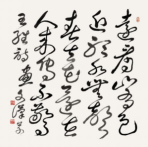 远看山有色
近听水无声
春去花还在
人来鸟不惊
王维诗画